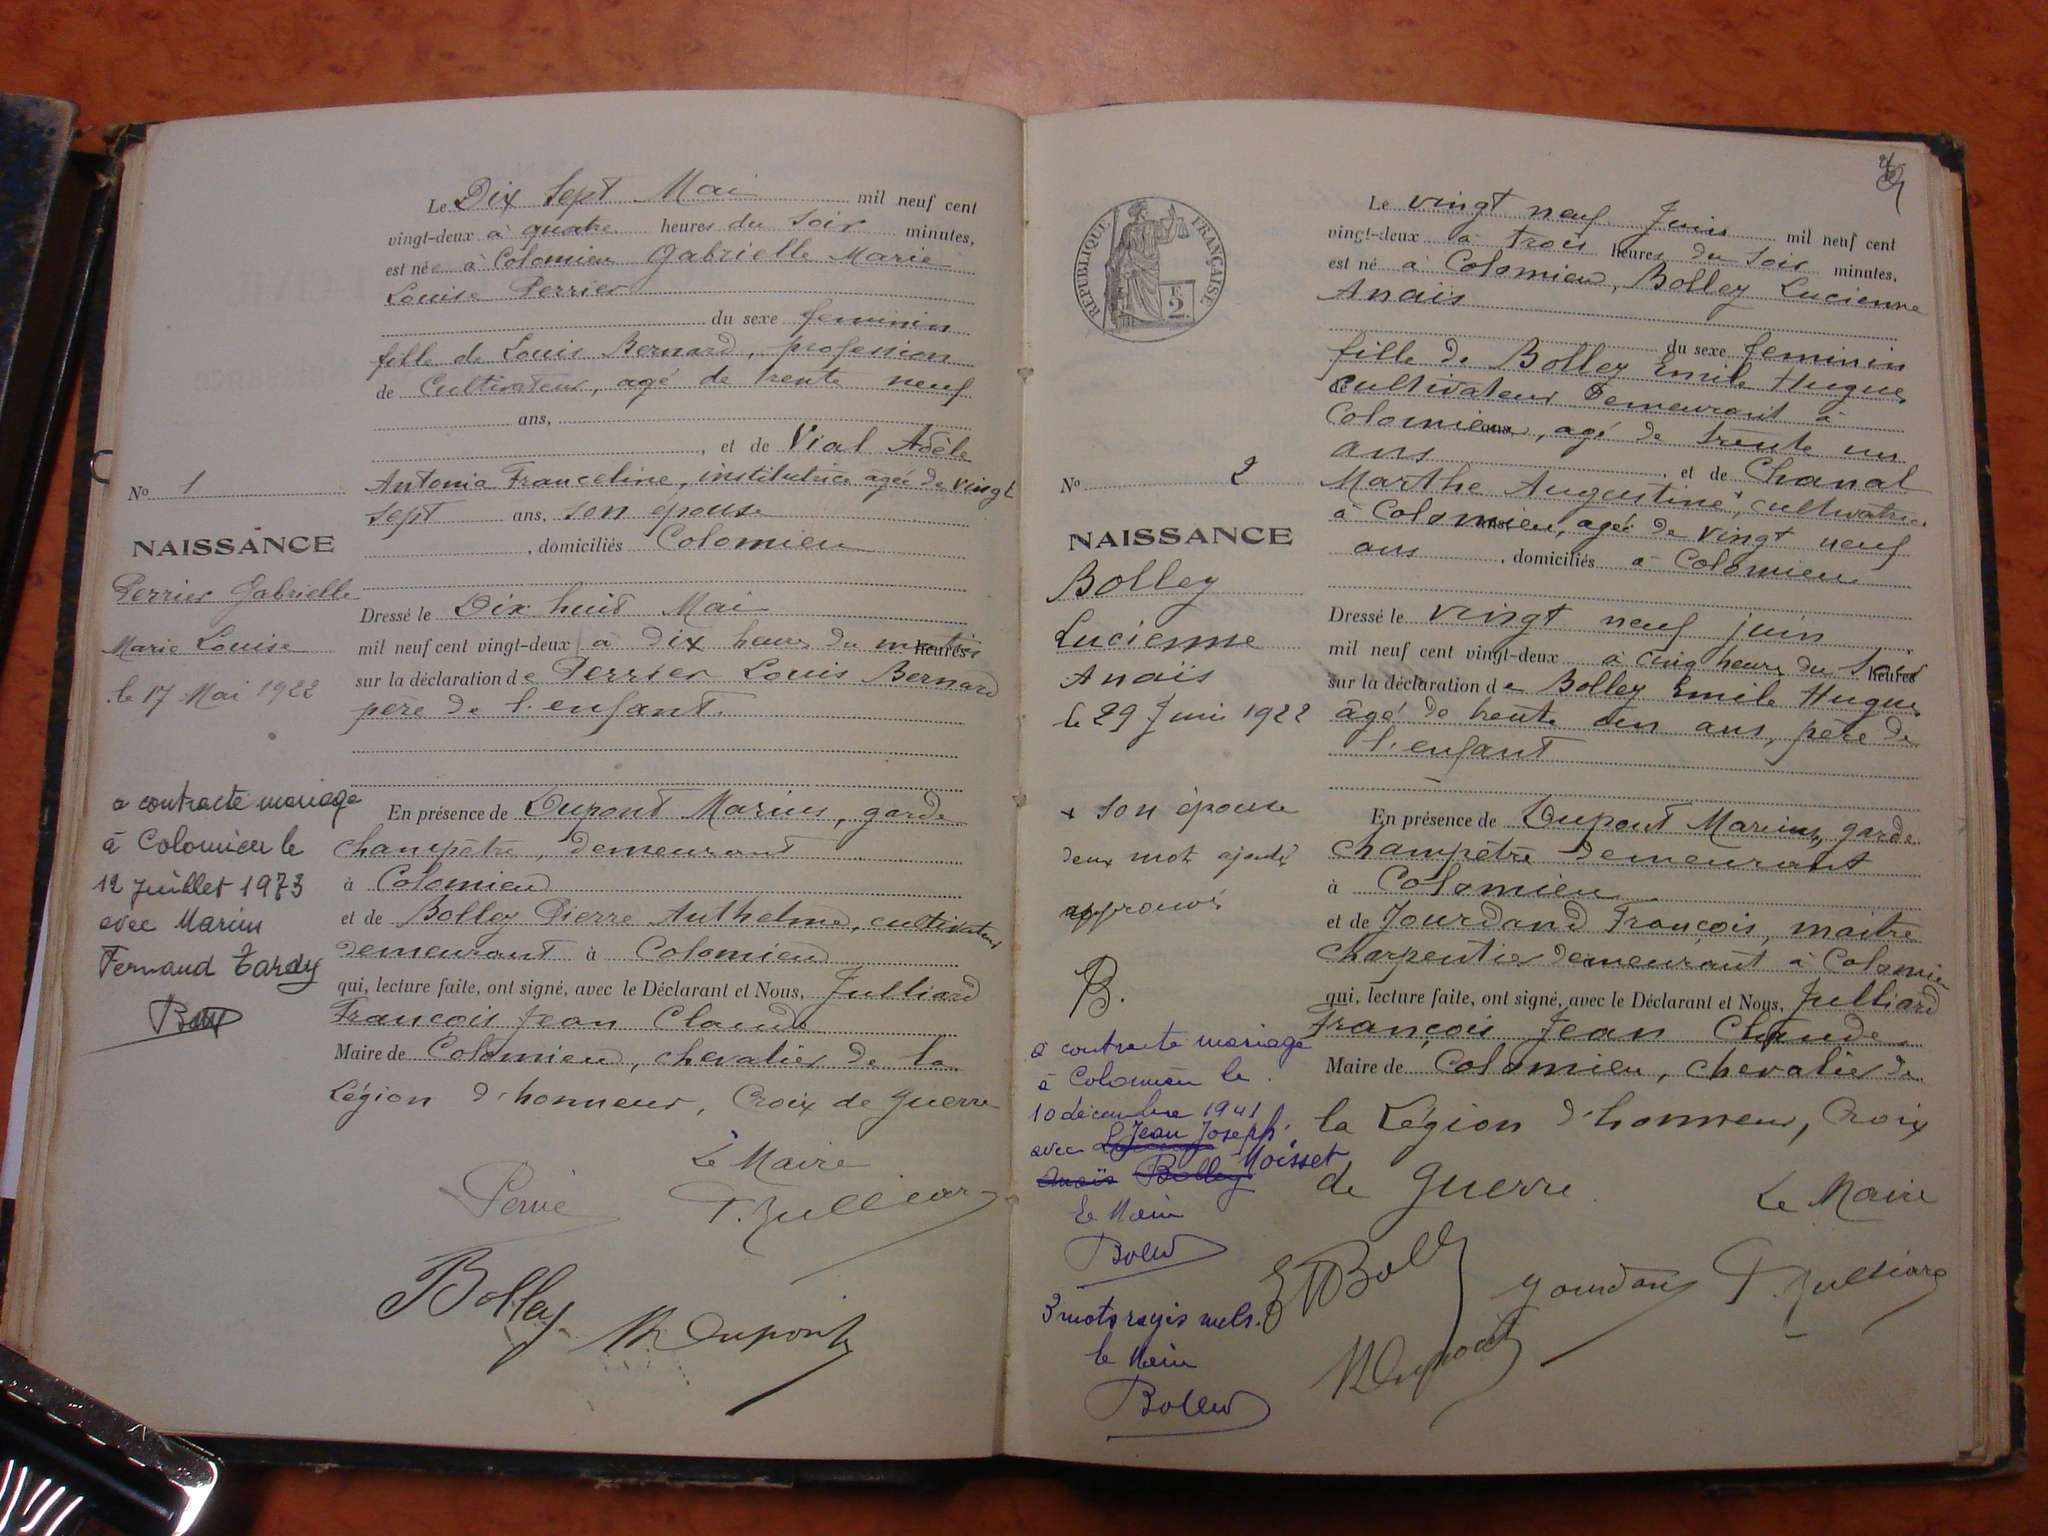 Le Dix Sept Mai mil neuf cent
vingt-deux à quatre heures du soir minutes,
est née à Colomieu Gabrielle Marie
Louise Perrier
du sexe feminin
fille de Louis Bernard, profession
de Cultivateur, agé de trente neuf
ans,
, et de Vial Adèle
Antonia Franceline, institutrice agée de vingt
sept ans, son épouse
, domiciliés Colomieu
Dressé le Dix huit Mai
mil neuf cent vingt-deux à dix heures du matin heures
sur la déclaration de Perrier Louis Bernard
père de l'enfant.
En présence de Dupont Marius, garde
champêtre, demeurant
à Colomieu
et de Bolley Pierre Anthelme, cultivateur
demeurant à Colomieu
qui, lecture faite, ont signé, avec le Déclarant et Nous, Julliard
François Jean Claude
Maire de Colomieu, chevalier de la
Légion d'honneur, Croix de Guerre
Le Maire
F. Julliard
Bolley
M. Dupont
No 1
NAISSANCE
Perrier Gabrielle
Marie Louise
le 17 Mai 1922
a contracté mariage
à Colomieu le
12 Juillet 1973
avec Marius
Fernand Tardy
RÉPUBLIQUE FRANÇAISE
2
No 2
NAISSANCE
Bolley
Lucienne
Anaïs
le 29 Juin 1922
+ son épouse
deux mots ajoutés
approuvés
B.
a contracté mariage
à Colomieu le
10 décembre 1941
avec Jean Joseph
Anaïs Bolley Moisset
Le Maire
3 mots rayés nuls.
le Maire
Le vingt neuf Juin mil neuf cent
vingt-deux à trois heures du soir minutes,
est né à Colomieu, Bolley Lucienne
Anaïs
du sexe feminin
fille de Bolley Emile Hugues
de cultivateur demeurant à
Colomieu ans, agé de trente un
ans , et de Chanal
Marthe Augustine +, cultivatrice
à Colomieu, agée de vingt neuf
ans , domiciliés à Colomieu
Dressé le vingt neuf juin
mil neuf cent vingt-deux à cinq heures du soir heures
sur la déclaration de Bolley Emile Hugues
âgé de trente un ans, père de
l'enfant
En présence de Dupont Marius, garde
champêtre demeurant
à Colomieu
et de Jourdand François, maître
charpentier demeurant à Colomieu
qui, lecture faite, ont signé, avec le Déclarant et Nous, Julliard
François Jean Claude
Maire de Colomieu, chevalier de
la Légion d'honneur, Croix
de Guerre
Le Maire
E Bolley
Jourdand
F. Julliard
M Dupont